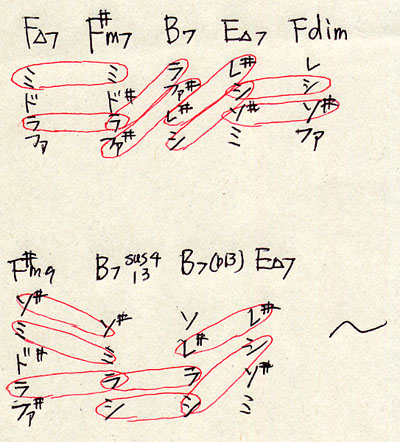 F△7 F#m7 B7 E△7 Fdim
ミ ミ ラ レ# レ
ド ド# ファ# シ シ
ラ ラ レ# ソ# ソ#
ファ ファ# シ ミ ファ
F#m9 B7 sus4 13 B7(b13) E△7
ソ# ソ# ソ レ#
ミ ミ レ# シ
ド# ラ ラ ソ#
ラ シ シ ミ
ファ#